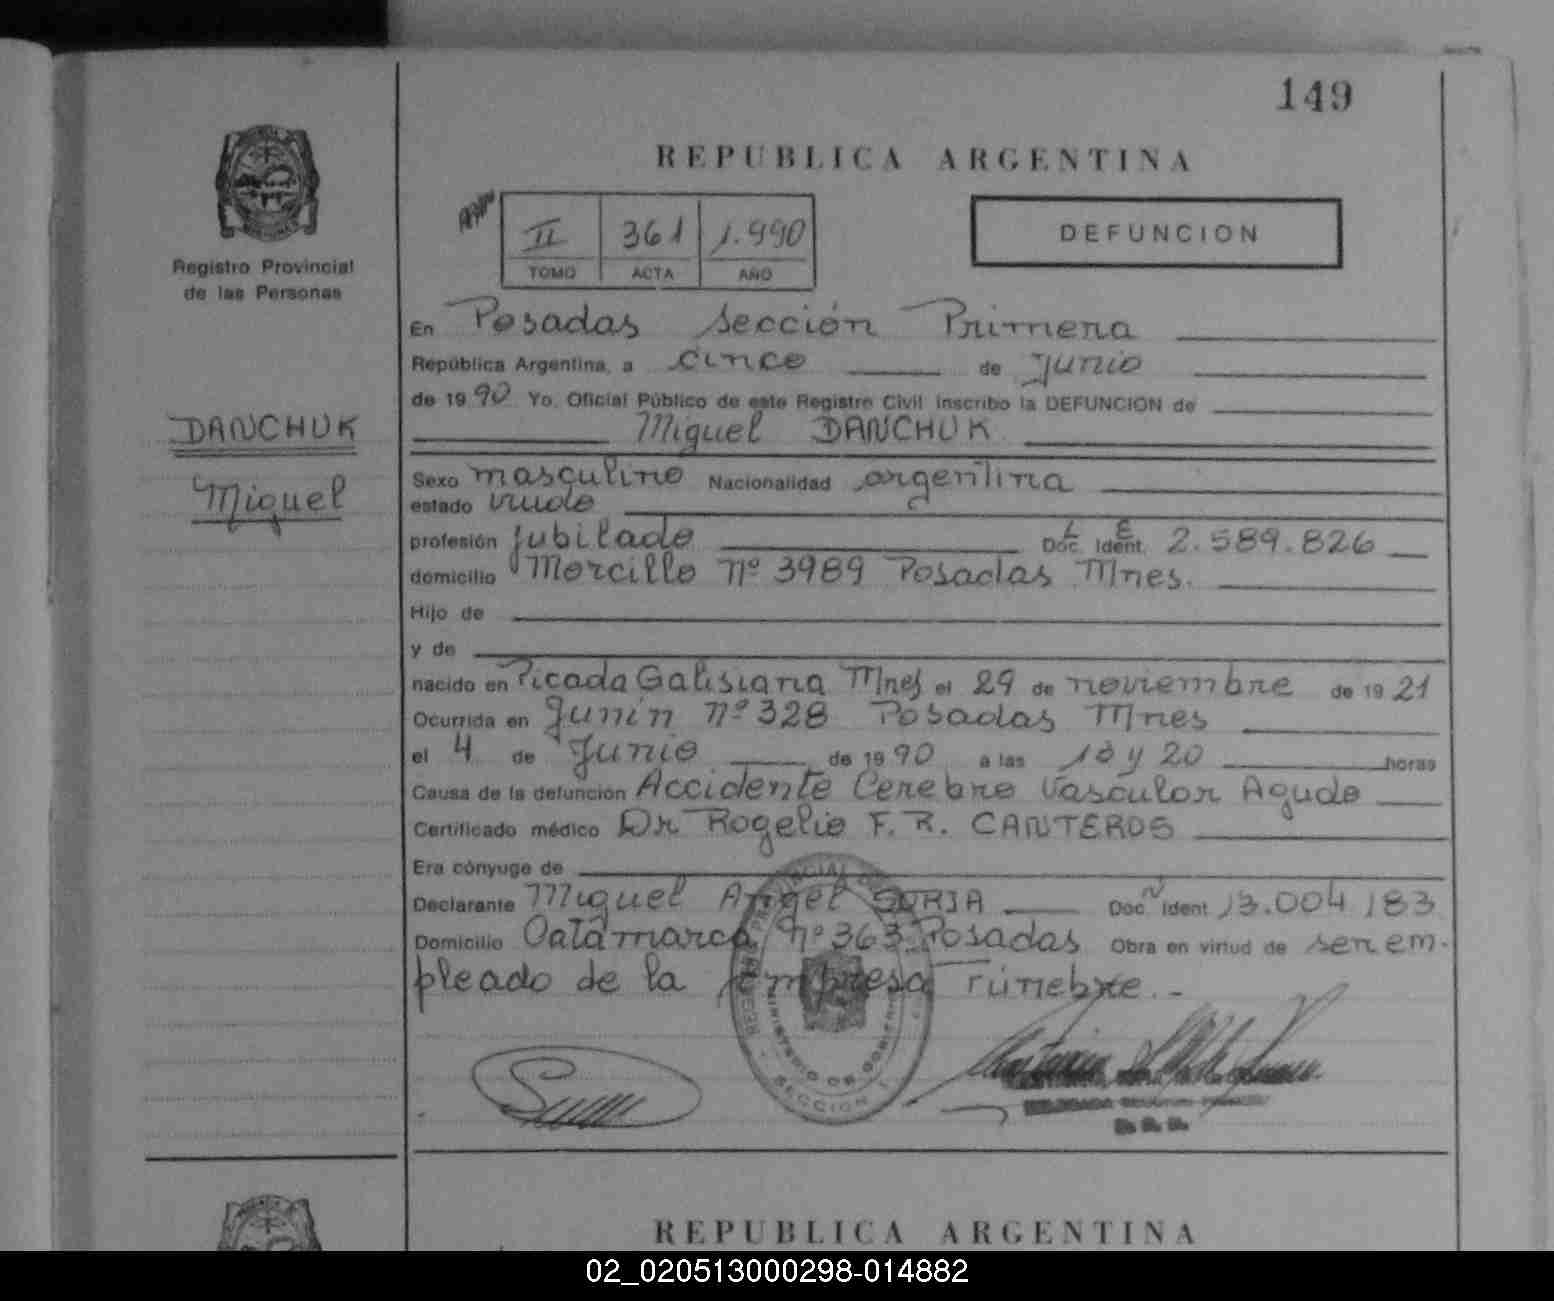 149
REPUBLICA ARGENTINA
II 361 1.990
TOMO ACTA AÑO
DEFUNCION
Registro Provincial
de las Personas
DANCHUK
Miguel
En Posadas Sección Primera
República Argentina, a cinco de Junio
de 1990 Yo, Oficial Público de este Registro Civil inscribo la DEFUNCION de
Miguel DANCHUK
Sexo masculino Nacionalidad argentina
estado viudo
profesión Jubilado L E Doc. Ident. 2.589.826
domicilio Morcillo nº 3989 Posadas Mnes.
Hijo de
y de
nacido en Picada Galisiana Mnes el 29 de noviembre de 1921
Ocurrida en Junin nº 328 Posadas Mnes
el 4 de Junio de 1990 a las y 20 horas
Causa de la defunción Accidente Cerebro Vascular Agudo
Certificado médico Dr Rogelio F. R. CANTEROS
Era cónyuge de
Declarante Miguel Angel SORIA Doc. N Ident 13.004.183
Domicilio Catamarca nº 363 Posadas Obra en virtud de ser em-
pleado de la Empresa Fúnebre.-
REGISTRO PROVINCIAL DE
MINISTERIO DE GOBIERNO
SECCION
REPUBLICA ARGENTINA
02_020513000298-014882